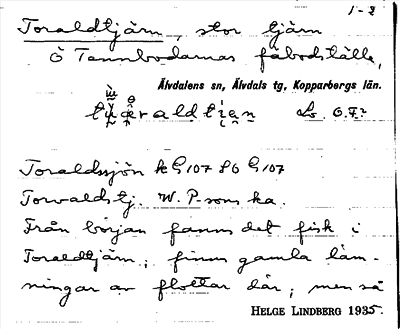 1-2
Toraldtjärn, stor tjärn
Ö Tennbodarnas fäbodställe,
Älvdalens sn, Älvdals tg, Kopparbergs län.
Lo. O.F.?
Toraldssjön k G 107 86 G 107
Torvaldstj. W. P-sons ka.
Från början fanns det fisk i
Toraldtjärn, finns gamla läm-
ningar av flottar där, men så
HELGE LINDBERG 1935.